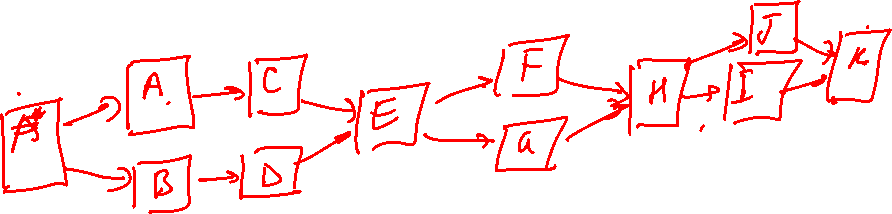 A
C
B
D
E
F
G
H
J
I
K